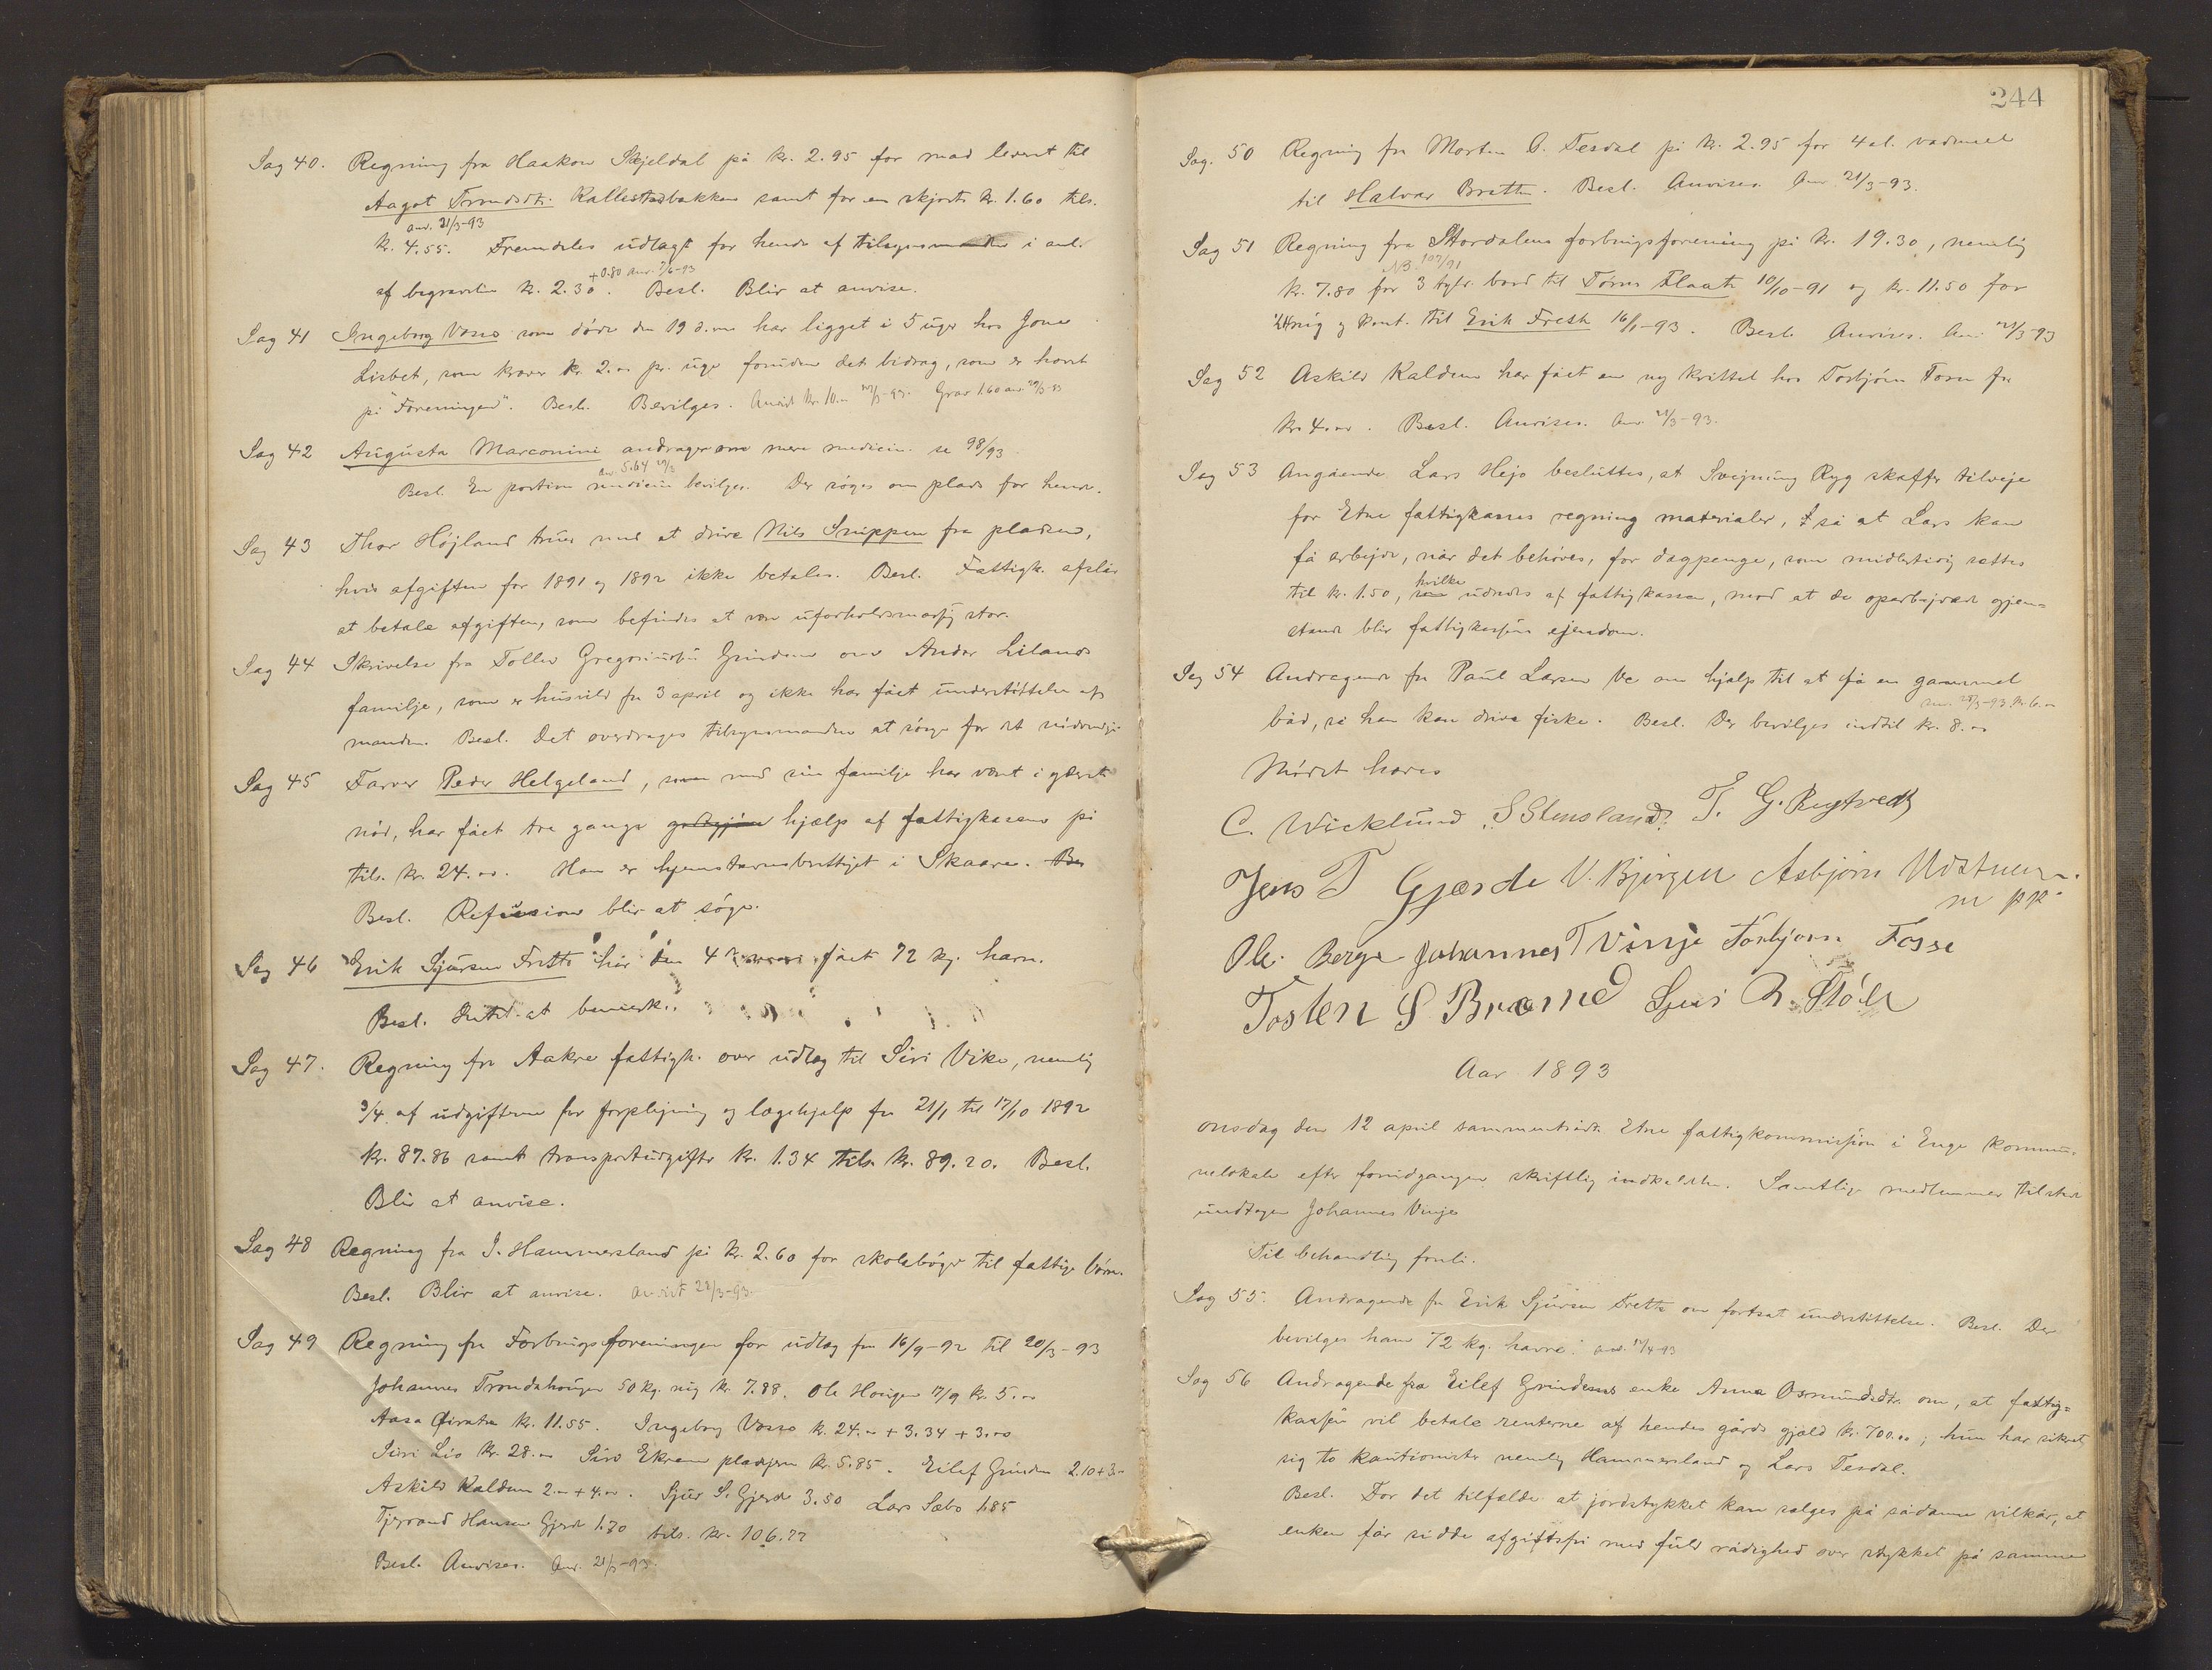 Sag 40. Regning fra Haakon Skjeldal på kr. 2.95 for mad leveret til
Aagot Trondsdtr. Kallestadbakken samt for en skjorte kr. 1.60 tils.
anv. 21/3-93
kr. 4.55. Fremdeles udlagt for hende af tilsynsmanden i anl.
+0.80 anv. 7/6-93
af begravelse kr. 2.30. Besl. Blir at anvise.
Sag 41 Ingeborg Vosso som døde den 19 d.m. har ligget i 5 uger hos Jone
Lisbet, som kræver kr. 2.00 pr. uge foruden det bidrag, som er hævet
på "Foreningen". Besl. Bevilges. Anvist kr. 10.00 21/3-93. Grav 1.60 anv. 29/3-93
Sag 42 Augusta Marconini andrager om mere medicin. se 98/93
anv. 5.64 29/3
Besl. En portion medicin bevilges. Der søges om plads for hende.
Sag 43 Thor Højland truer med at drive Nils Snippen fra pladsen,
hvis afgiften for 1891 og 1892 ikke betales. Besl. Fattigk. afslår
at betale afgiften, som befindes at være uforholdsmæsig stor.
Sag 44 Skrivelse fra Tollev Gregoriussen Grindene om Anders Lilands
familje, som er husvild fra 3 april og ikke har fået understøttelse af
manden. Besl. Det overdrages tilsynsmanden at sørge for det nødvendige.
Sag 45 Farver Peder Helgeland, som med sin familje har været i yderste
nød, har fået tre gange godtgjør hjælp af fattigkassen på
tils. kr. 24.00. Han er hjemstavnsberettiget i Skaare. Bes
Besl. Refusion blir at søge.
Sag 46 Erik Sjursen Frette har den 4 fået 72 kg. havre.
Besl. Intet at bemærke.
Sag 47. Regning fra Aakre fattigk. over udlæg til Siri Vike, nemlig
3/4 af udgifterne for forplejning og lægehjælp fra 21/1 til 17/10 1892
kr. 87.86 samt transportudgifter kr. 1.34 tils. kr. 89.20. Besl.
Blir at anvise.
Sag 48 Regning fra I. Hammersland på kr. 2.60 for skolebøger til fattige børn.
Besl. Blir at anvise. anvist 28/3-93.
Sag 49 Regning fra Forbrugsforeningen for udlæg fra 16/9-92 til 20/3-93
Johannes Trondshougen 50 kg. rug kr. 7.88. Ole Hougen 7/9 kr. 5.00
Aasa kr. 11.55. Ingeborg Vosso kr. 24.00 + 3.34 + 3.00
Siri Lio kr. 28.00 Siro Ekrene pladsjern kr. 5.85. Eilef Grinden 2.10+3.00
Askild Kaldem 2.00+4.00. Sjur S. Gjerde 3.50 Lars Sæbø 1.85
Tjerand Hansen Gjerde 1.70 tils. kr. 106.77
Besl. Anvises. Anv. 21/3-93.
244
Sag. 50 Regning fra Morten O. Tesdal på kr. 2.95 for 4 al. vadmel
til Halvar Bratte. Besl. Anvises. Anv. 21/3-93.
Sag 51 Regning fra Stordalens forbrugsforening på kr. 19.30, nemlig
NB. 107/91
kr. 7.80 for 3 tylvt. bord til Tørris Flaate 10/10-91 og kr. 11.50 for
rug og kont. til Erik Frette 16/1-93. Besl. Anvises. Anv. 21/3-93
Sag 52 Askild Kaldem har fået en ny krittel hos Torbjørn Tosse for
kr. 4.00. Besl. Anvises. Anv. 21/3-93.
Sag 53 Angående Lars Hejo besluttes, at Svejnung Ryg skaffer tilveje
for Etne fattigkasses regning materialer, så at Lars kan
få arbejde, når det behøves, for dagpenge, som midlertidig sættes
hvilke
til kr. 1.50, som udredes af fattigkassen, mod at de oparbejdede gjen-
stande blir fattigkassens ejendom.
Sag 54 Andragende fra Paul Larsen Ve om hjælp til at få en gammel
anv. 28/3-93 kr. 6.00
båd, så han kan drive fiske. Besl. Der bevilges indtil kr. 8.00
Mødet hæves
C. Wicklund S Stensland T. G. Rygtvedt
Jens T Gjærde V. Bjørgen Asbjørn Udstuen
m pp.
Ole Berge Johannes T Vinje Torbjørn Fosse
Tosten S Bramd Sjur R. Støle
Aar 1893
onsdag den 12 april sammentrådte Etne fattigkommission i Enge kommu-
nelokale efter forudgangen skriftlig indkaldelse. Samtlige medlemmer tilstede
undtagen Johannes Vinje
Til behandling forelå.
Sag 55. Andragende fra Erik Sjursen Frette om fortsat understøttelse. Besl. Der
bevilges ham 72 kg. havre. anv. 12/4-93
Sag 56 Andragende fra Eilef Grindenes enke Anna Osmundsdtr. om, at fattig-
kassen vil betale renterne af hendes gårds gjæld kr. 700.00; hun har sikret
sig to kautionister nemlig Hammersland og Lars Tesdal.
Besl. For det tilfælde at jordstykket kan sælges på sådanne vilkår, at
enken får sidde afgiftsfri med fuld rådighed over stykket på samme